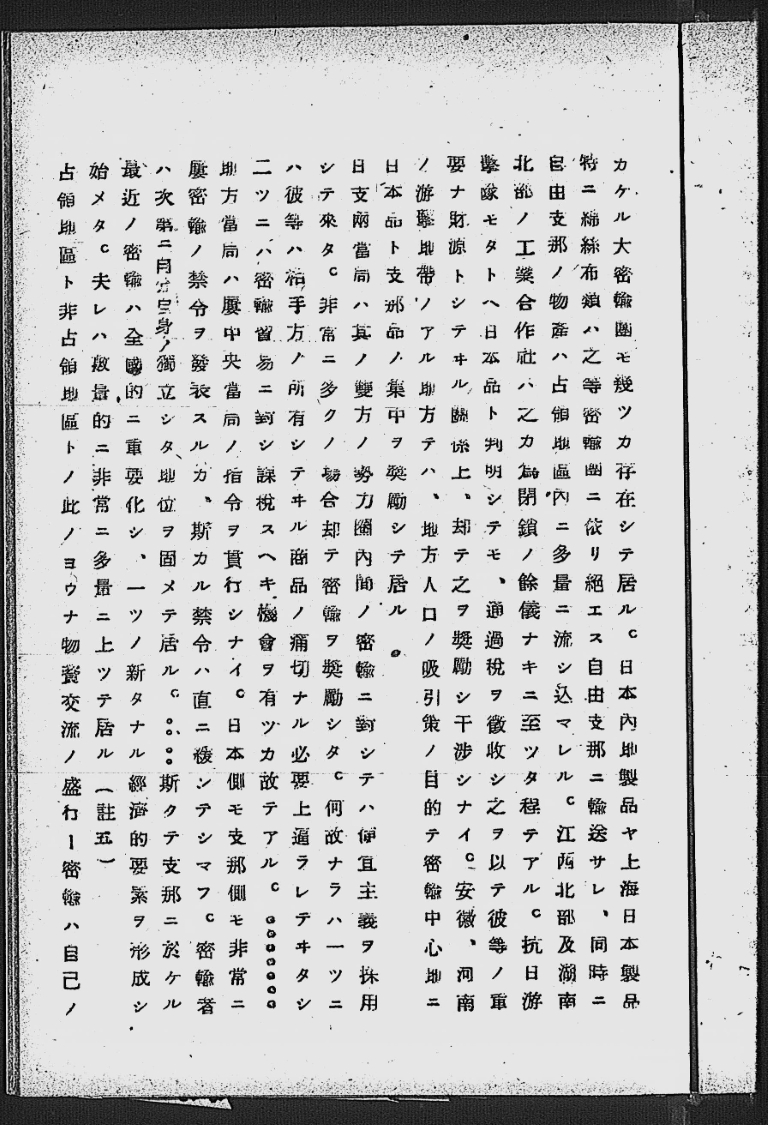 カケル大密輸團モ幾ツカ存在シテ居ル。日本內地製品ヤ上海日本製品
特ニ綿絲布類ハ之等密輸團ニ依リ絕エス自由支那ニ輸送サレ、同時ニ
自由支那ノ物產ハ占領地區內ニ多量ニ流シ込マレル。江西北部及湖南
北部ノ工業合作社ハ之カ爲閉鎖ノ餘儀ナキニ至ツタ程テアル。抗日游
擊隊モタトヘ日本品ト判明シテモ、通過稅ヲ徵收シ之ヲ以テ彼等ノ重
要ナ財源トシテヰル關係上、却テ之ヲ奬勵シ干涉シナイ。安徽、河南
ノ游擊地帶ノアル地方テハ、地方人口ノ吸引策ノ目的テ密輸中心地ニ
日本品ト支那品ノ集中ヲ奬勵シテ居ル。
日支兩當局ハ其ノ雙方ノ勢力圈內間ノ密輸ニ對シテハ便宜主義ヲ採用
シテ來タ。非常ニ多クノ場合却テ密輸ヲ奬勵シタ。何故ナラハ一ツニ
ハ彼等ハ相手方ノ所有シテヰル商品ノ痛切ナル必要上逼ラレテヰタシ
二ツニハ密輸貿易ニ對シ課稅スヘキ機會ヲ有ツカ故テアル。。。。。。。
地方當局ハ屢中央當局ノ指令ヲ貫行シナイ。日本側モ支那側モ非常ニ
屢密輸ノ禁令ヲ發表スルカ、斯カル禁令ハ直ニ緩ンテシマフ。密輸者
ハ次第ニ自分自身ノ獨立シタ地位ヲ固メテ居ル。。。。斯クテ支那ニ於ケル
最近ノ密輸ハ全國的ニ重要化シ、一ツノ新タナル經濟的要素ヲ形成シ
始メタ。夫レハ數量的ニ非常ニ多量ニ上ツテ居ル(註五)
占領地區ト非占領地區トノ此ノヨウナ物資交流ノ盛行ー密輸ハ自己ノ